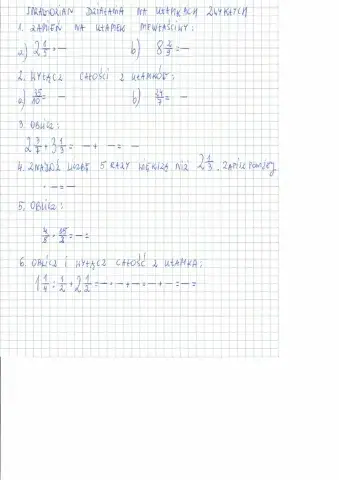 SPRAWDZIAN DZIAŁANIA NA UŁAMKACH ZWYKŁYCH
1. ZAMIEŃ NA UŁAMEK NIEWŁAŚCIWY:
a) 2 1/3 = — b) 8 2/5 = —
2. WYŁĄCZ CAŁOŚCI Z UŁAMKÓW:
a) 35/10 = — b) 24/7 = —
3. OBLICZ:
2 3/7 + 3 1/3 = — + — = —
4. ZNAJDŹ LICZBĘ 5 RAZY WIĘKSZĄ NIŻ 2 1/3. ZAPISZ PONIŻEJ
· — = —
5. OBLICZ:
4/5 · 15/2 = — =
6. OBLICZ I WYŁĄCZ CAŁOŚĆ Z UŁAMKA:
1 1/4 : 1/2 + 2 1/2 = — · — + — = — + — = — = —